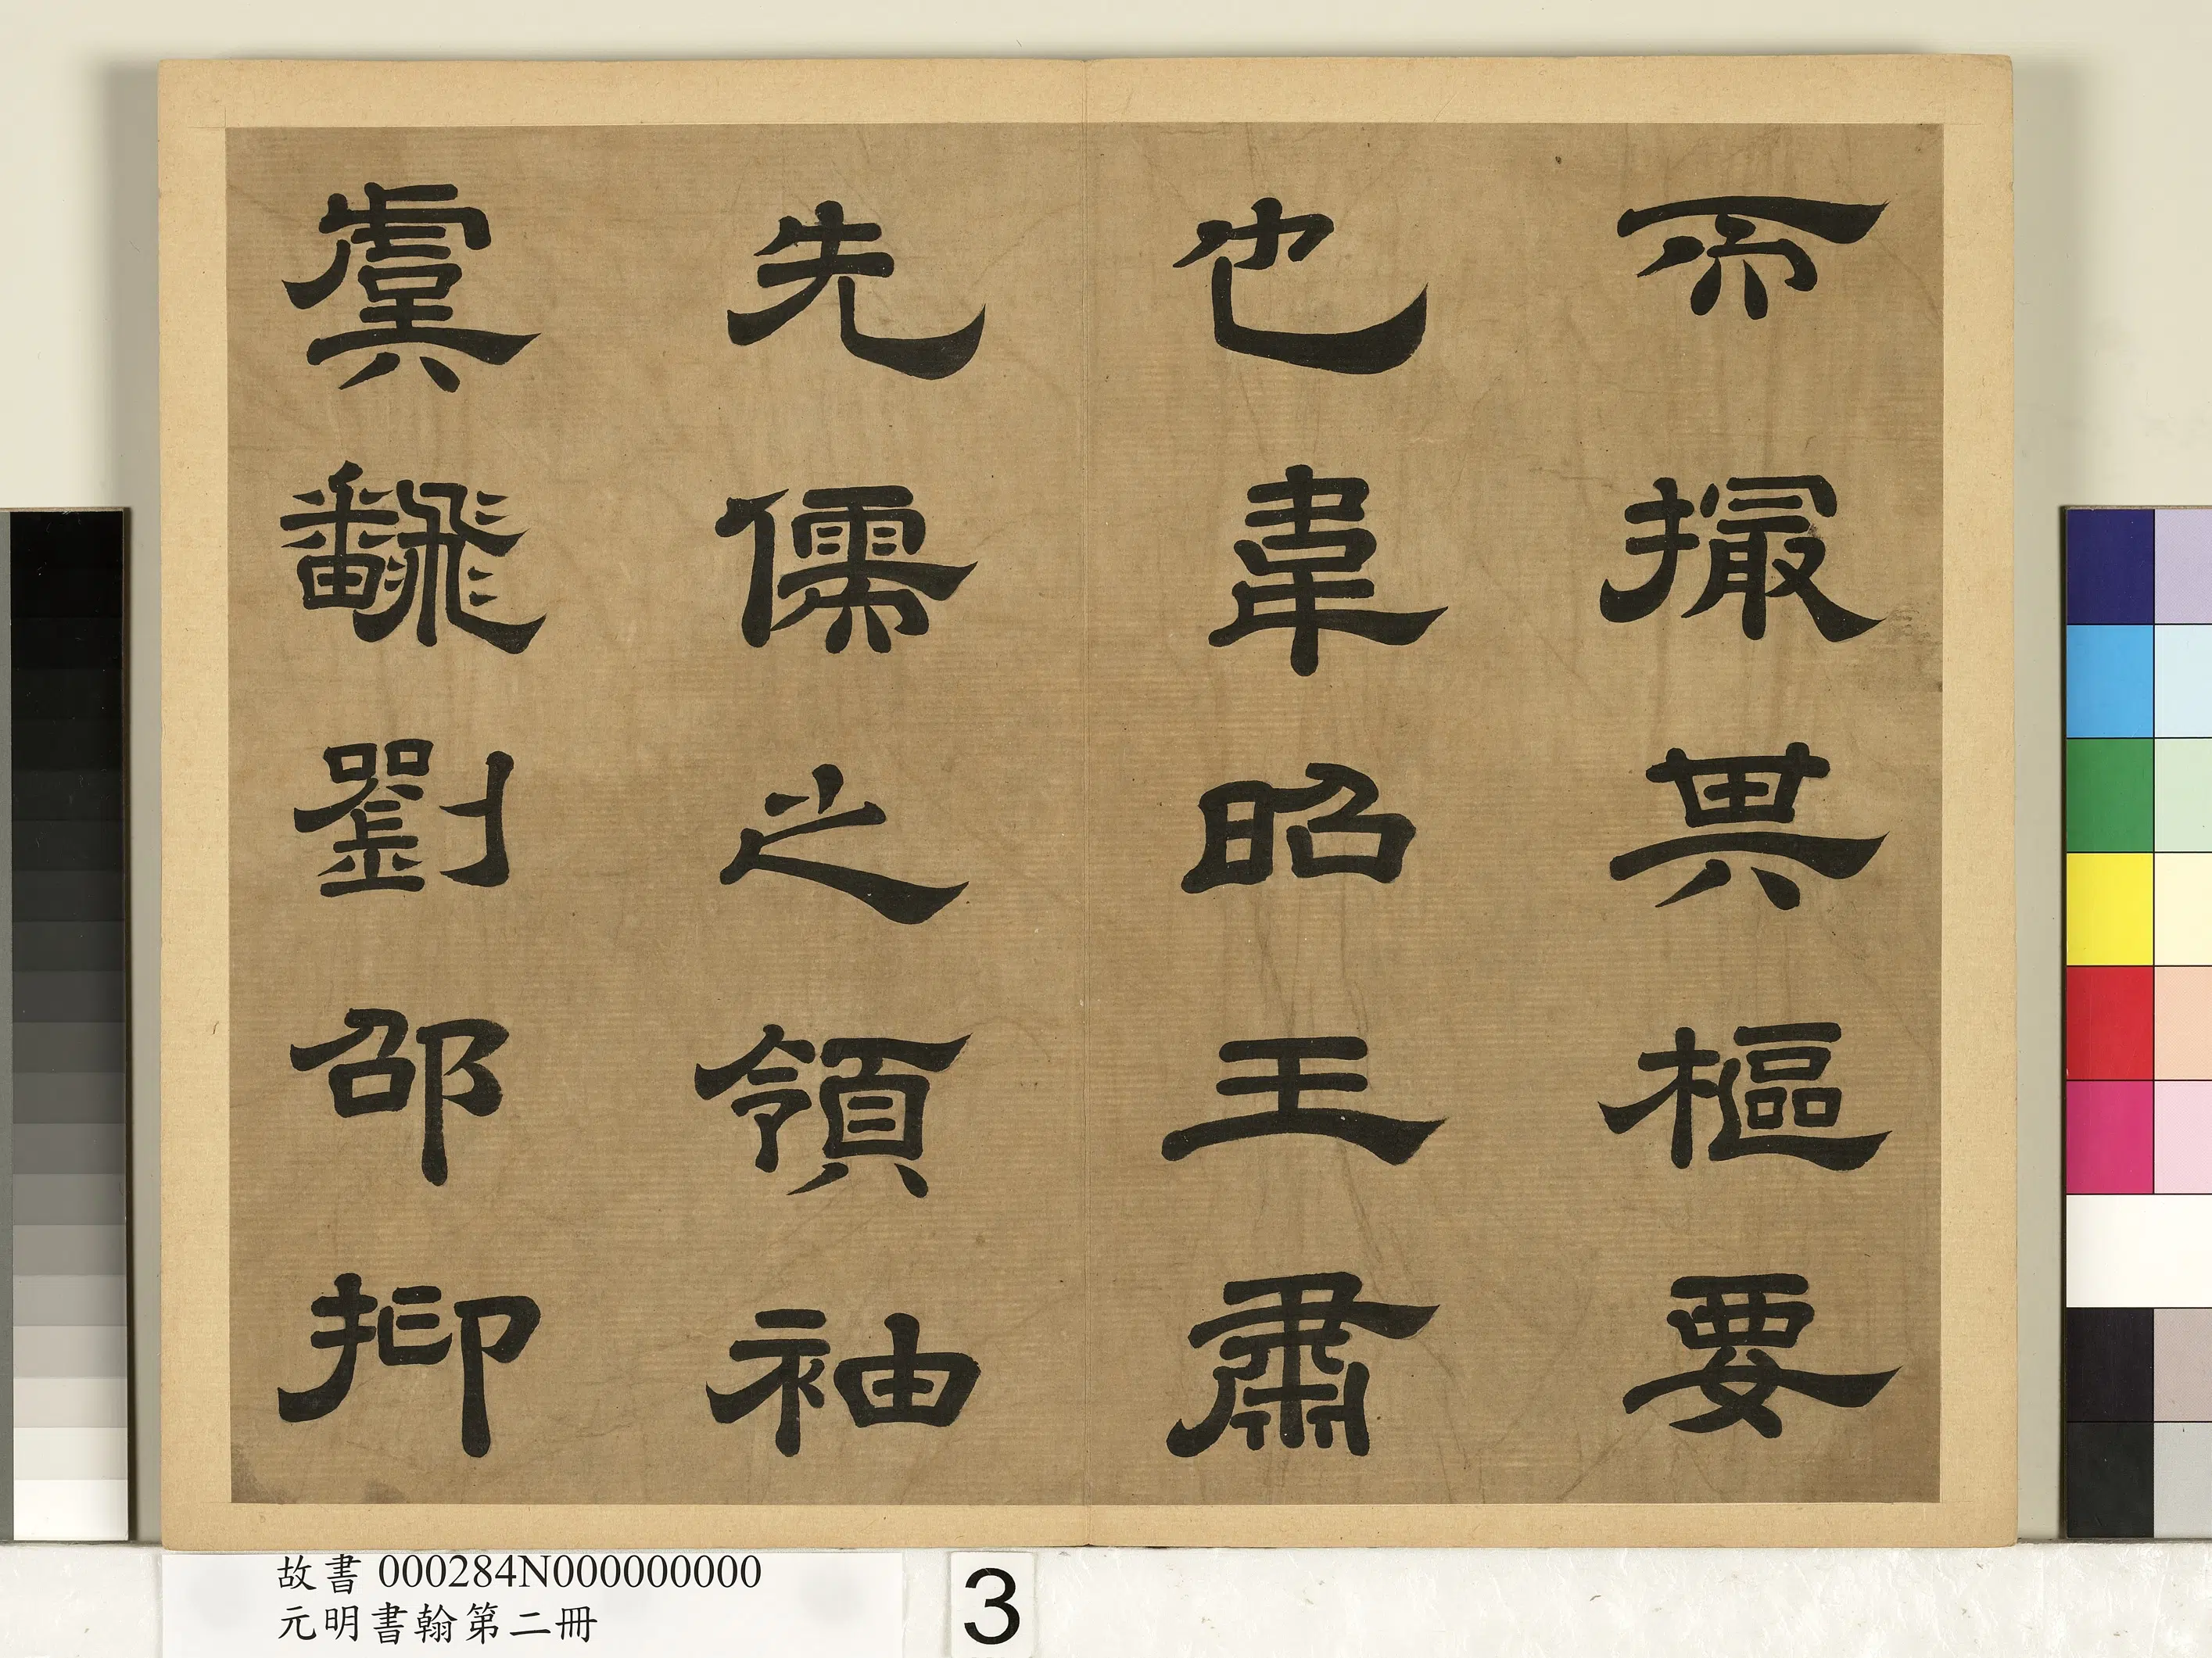 而撮其樞要
也韋昭王肅
先儒之領袖
虞飜劉邵抑
故書 000284N000000000
元明書翰第二冊
3